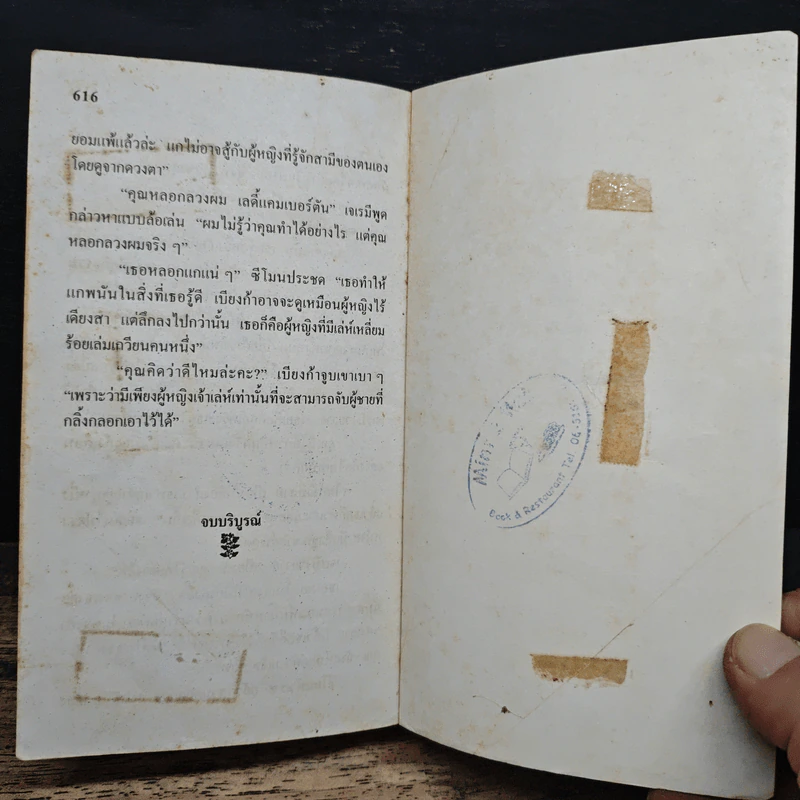 616
ยอมแพ้แล้วล่ะ แกไม่อาจสู้กับผู้หญิงที่รู้จักสามีของตนเอง
โดยดูจากดวงตา”
“คุณหลอกลวงผม เลดี้แคมเบอร์ตัน” เจเรมีพูด
กล่าวหาแบบล้อเล่น “ผมไม่รู้ว่าคุณทำได้อย่างไร แต่คุณ
หลอกลวงผมจริง ๆ”
“เธอหลอกแกแน่ ๆ” ซีโมนประชด “เธอทำให้
แกพนันในสิ่งที่เธอรู้ดี เบียงก้าอาจจะดูเหมือนผู้หญิงไร้
เดียงสา แต่ลึกลงไปกว่านั้น เธอก็คือผู้หญิงที่มีเล่ห์เหลี่ยม
ร้อยเล่มเกวียนคนหนึ่ง”
“คุณคิดว่าดีไหมล่ะคะ?” เบียงก้าจูบเขาเบา ๆ
“เพราะว่ามีเพียงผู้หญิงเจ้าเล่ห์เท่านั้นที่จะสามารถจับผู้ชายที่
กลิ้งกลอกเอาไว้ได้”
จบบริบูรณ์
Book & Restaurant Tel